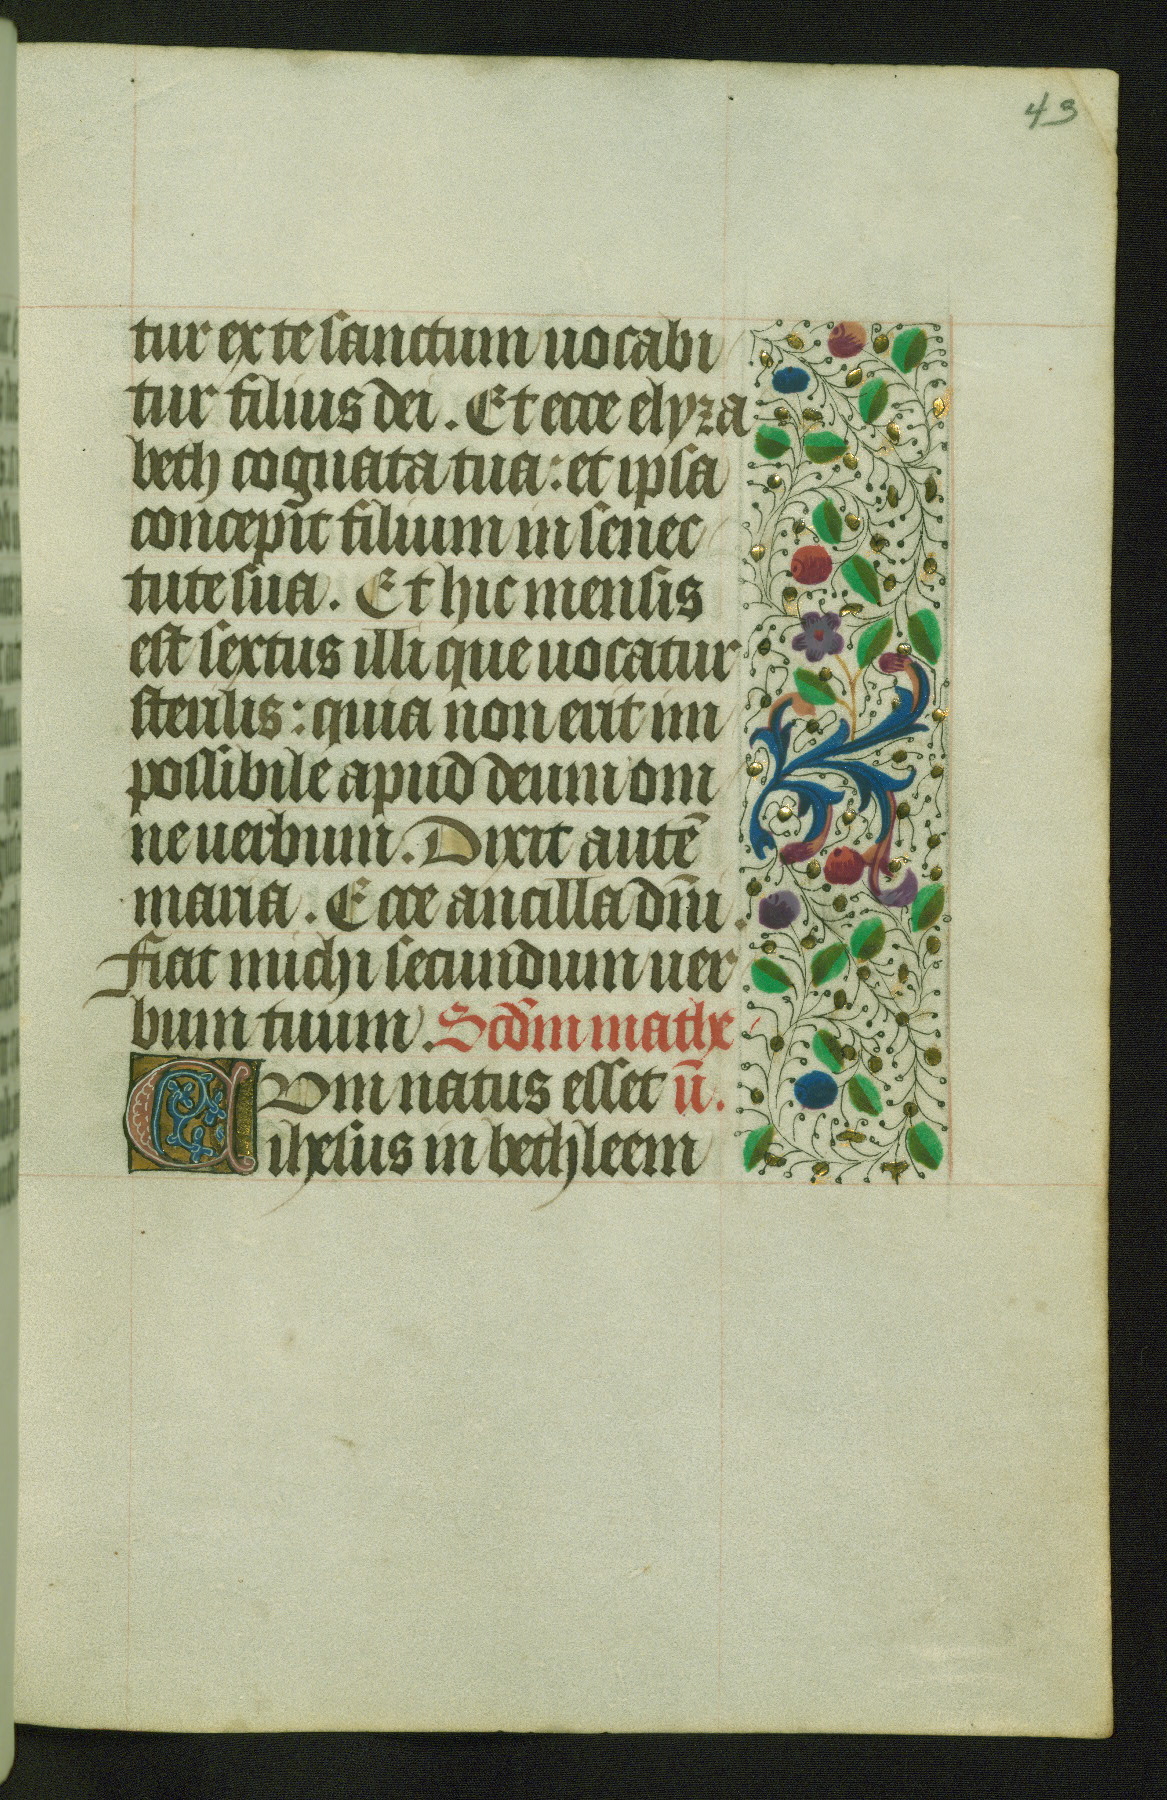 43
tur ex te sanctum uocabi
tur filius dei. Et ecce elyza
beth cognata tua: et ipsa
concepit filium in senec
tute sua. Et hic mensis
est sextus illi que uocatur
sterilis: quia non erit im
possibile apud deum om
ne uerbum. Dixit autē
maria. Ecce ancilla dn̄i.
Fiat michi secundum uer
bum tuum. Scd̄m mathe
CVm natus esset ū.
ihesus in bethleem